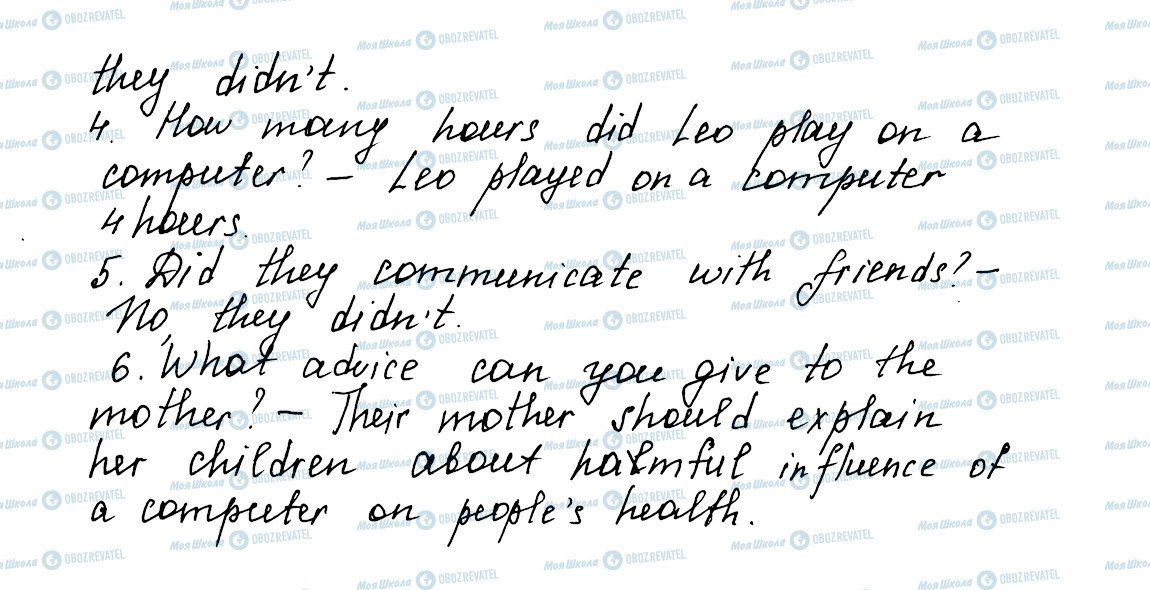 they didn't.
4. How many hours did Leo play on a
computer? – Leo played on a computer
4 hours.
5. Did they communicate with friends? –
No, they didn't.
6. What advice can you give to the
mother? – Their mother should explain
her children about harmful influence of
a computer on people's health.